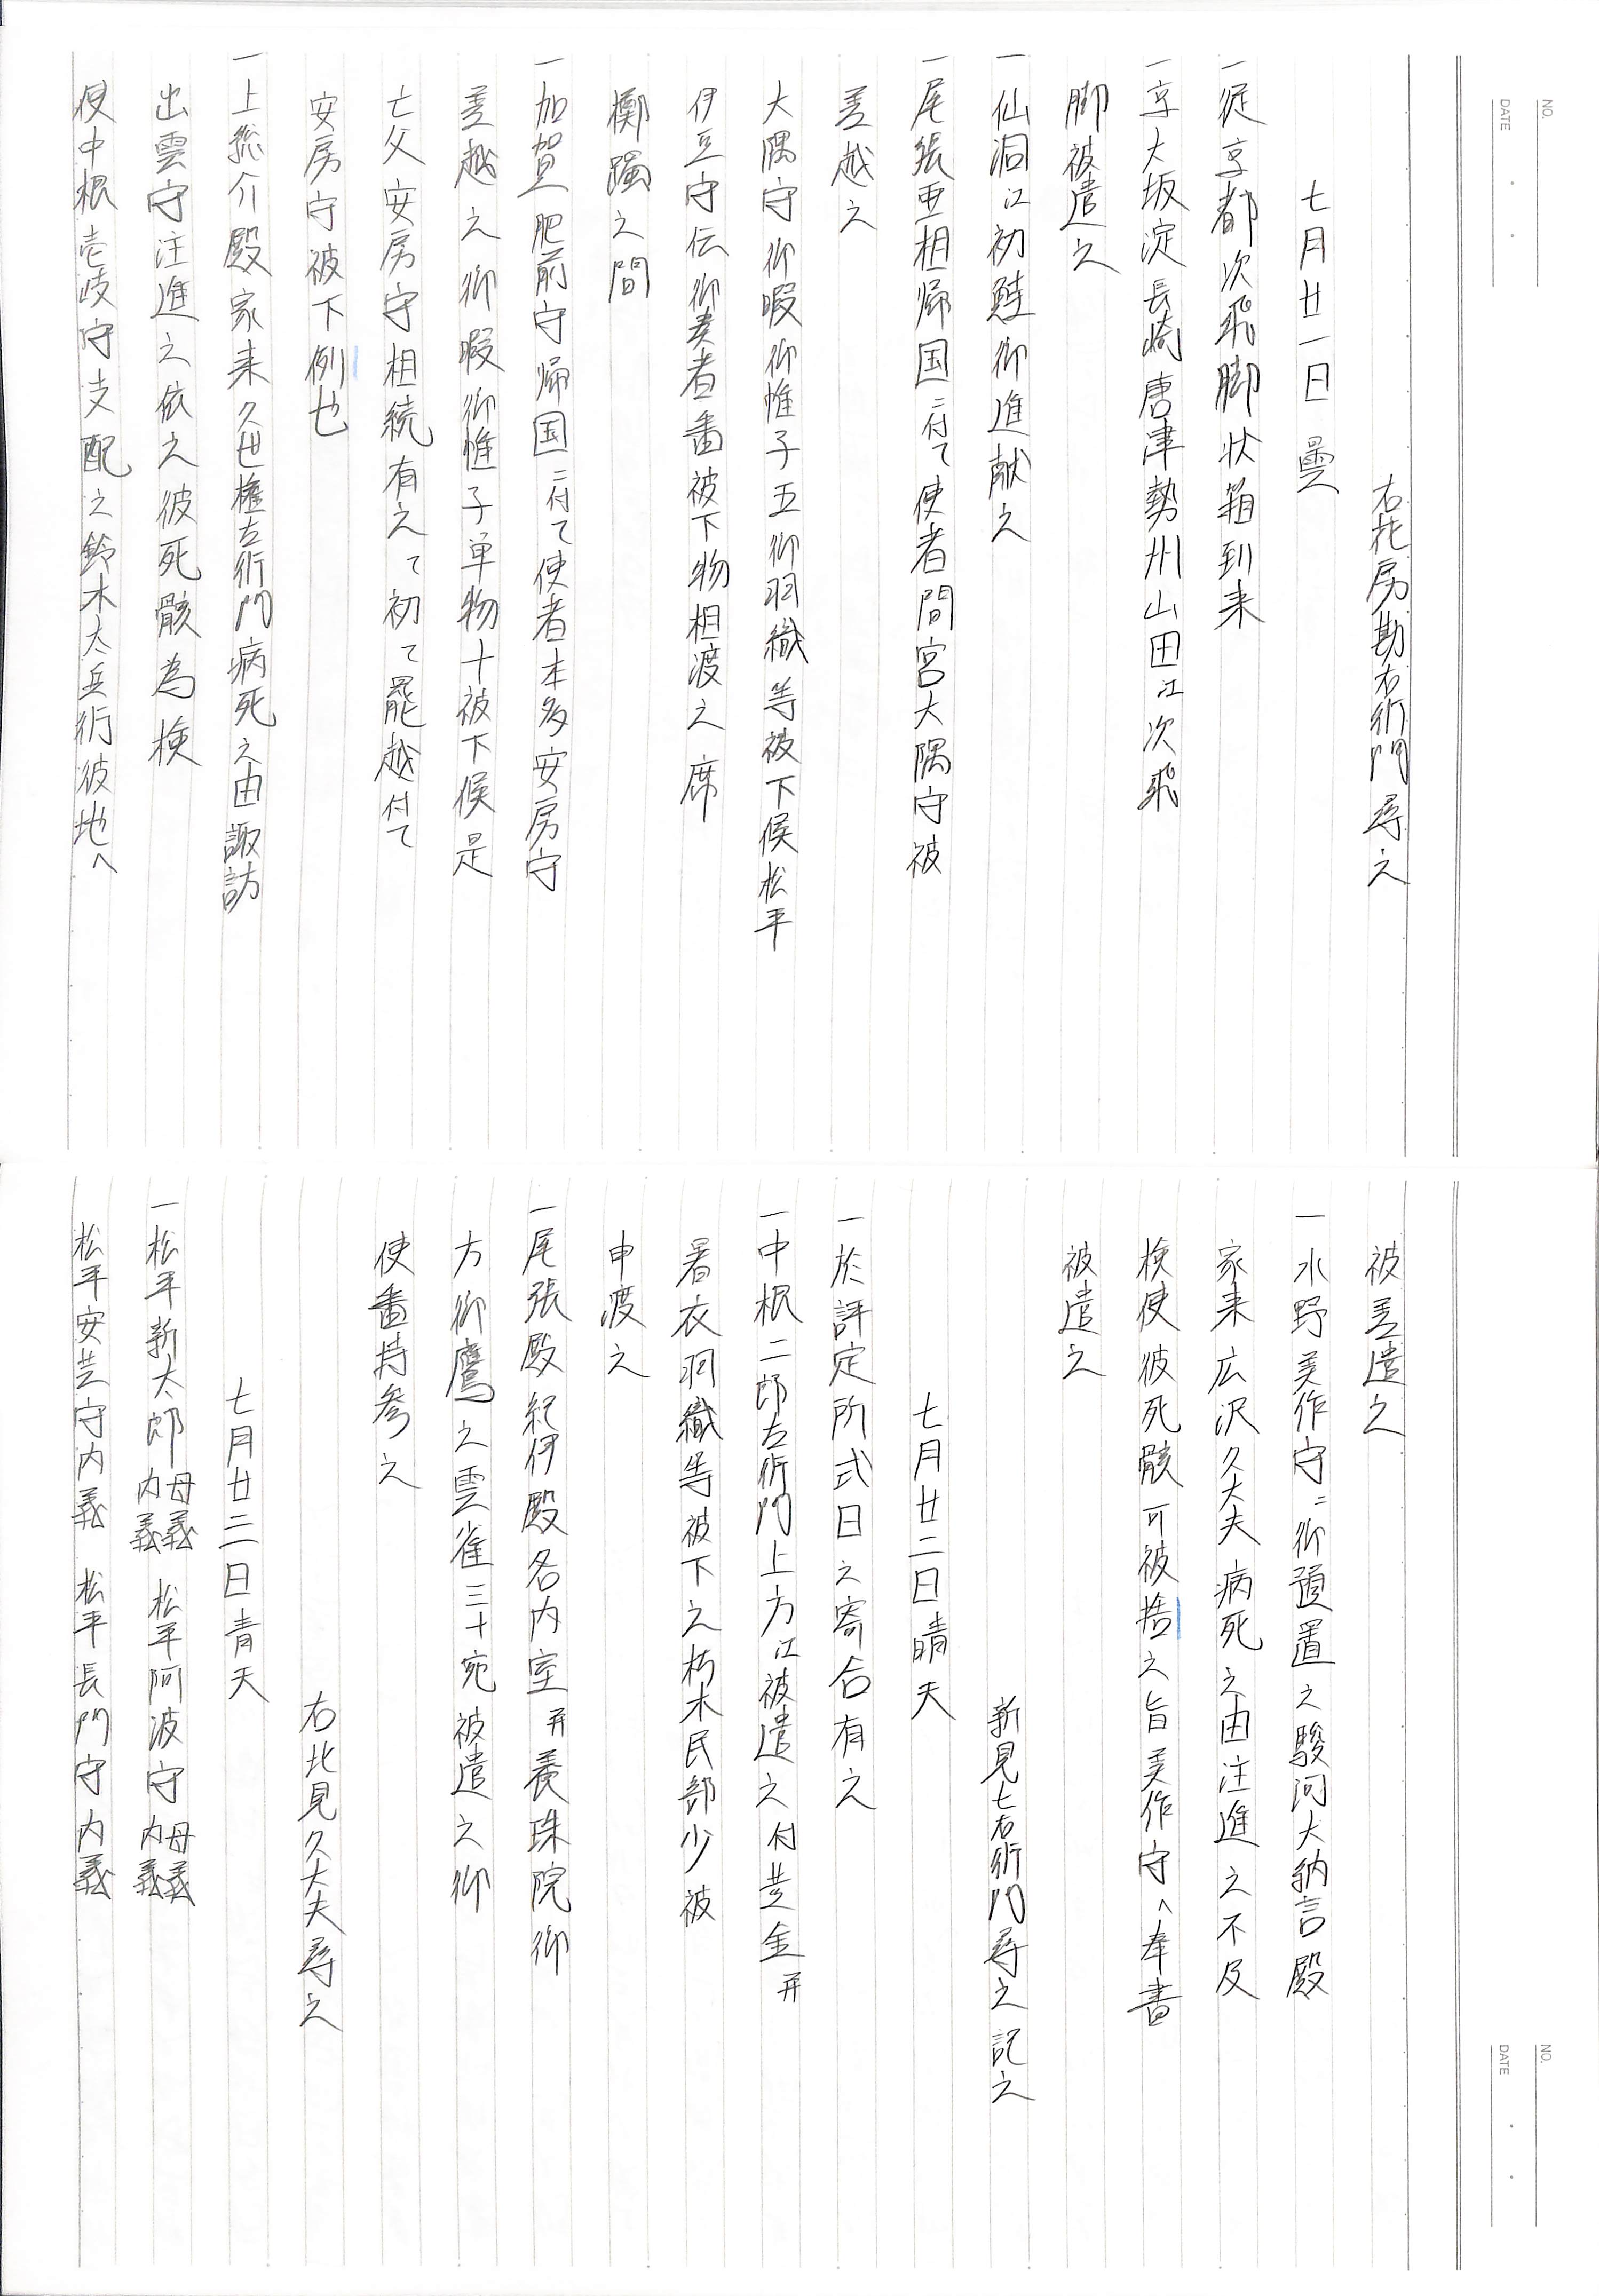 NO.
DATE
右花房勘右衛門尋之
七月廿一日 曇
一従京都次飛脚状箱到来
一京大坂淀長崎唐津勢州山田江次飛
脚被遣之
一仙洞江初鮭御進献之
一尾張亜相帰国ニ付て使者間宮大隅守被
差越之
大隅守御暇御帷子五御羽織等被下候松平
伊豆守伝御奏者番被下物相渡之席
躑躅之間
一加賀肥前守帰国ニ付て使者本多安房守
差越之御暇御帷子単物十被下候是
亡父安房守相続有之て初て罷越付て
安房守被下例也
一上総介殿家来久世権左衛門病死之由諏訪
出雲守注進之依之彼死骸為検
使中根壱岐守支配之鈴木太兵衛彼地へ
NO.
DATE
被差遣之
一水野美作守ニ御預置之駿河大納言殿
家来広沢久大夫病死之由注進之不及
検使彼死骸可被捨之旨美作守へ奉書
被遣之
新見七右衛門尋之記之
七月廿二日晴天
一於評定所式日之寄合有之
一中根二郎左衛門上方江被遣之付黄金并
暑衣羽織等被下之朽木民部少被
申渡之
一尾張殿紀伊殿各内室并養珠院御
方御鷹之雲雀三十宛被遣之御
使番持参之
右北見久大夫尋之
七月廿三日青天
一松平新太郎母義内義 松平阿波守母義内義
松平安芸守内義 松平長門守内義